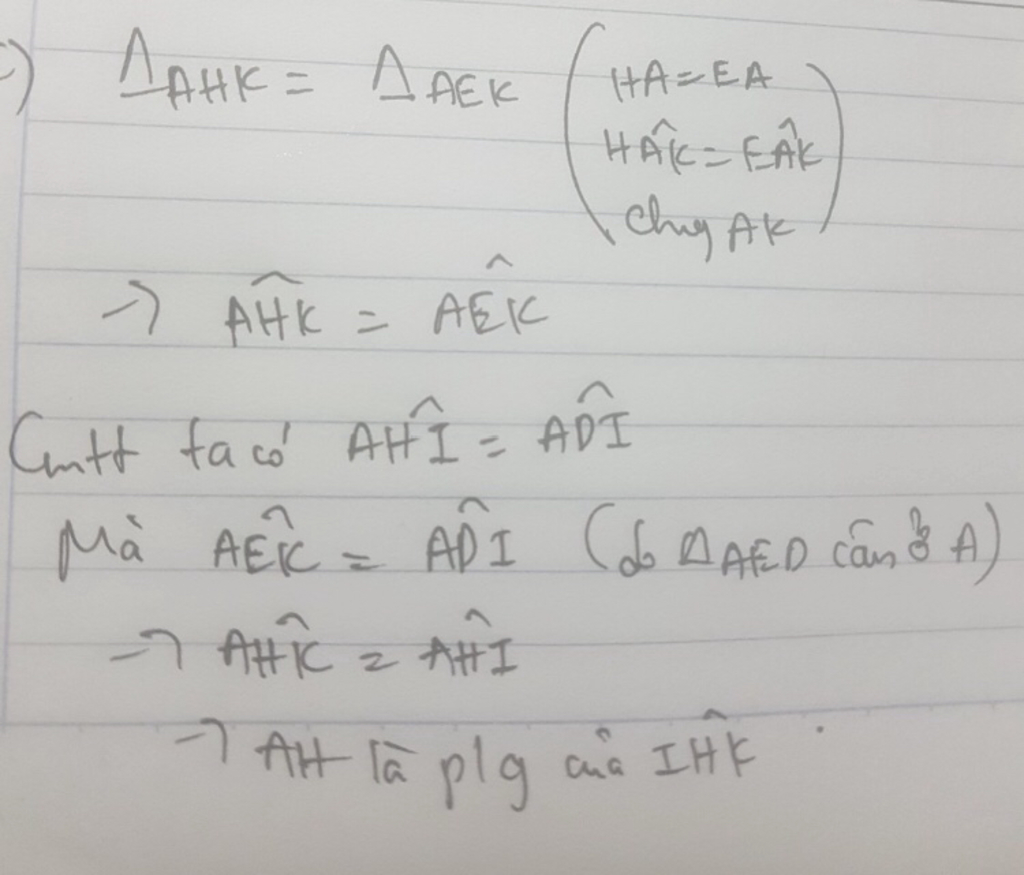 c) ΔAHK = ΔAEK (HA = EA
HÂK = EÂK
chung AK)
→ AĤK = AÊK
Cmtt ta có AĤI = AD̂I
Mà AÊK = AD̂I (do ΔAED cân ở A)
→ AĤK = AĤI
→ AH là p/g của IĤK.